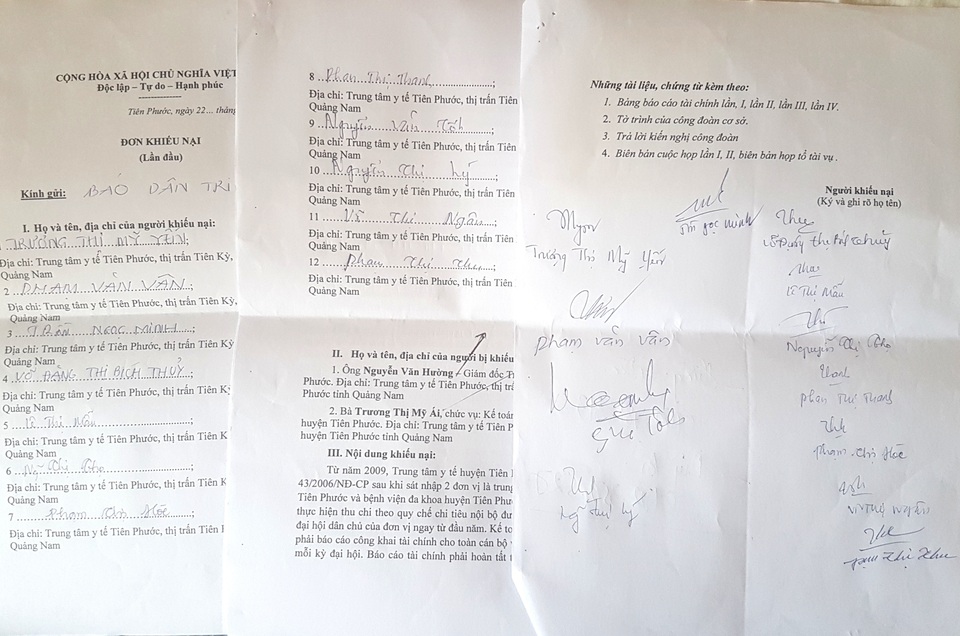 CỘNG HÒA XÃ HỘI CHỦ NGHĨA VIỆT
Độc lập – Tự do – Hạnh phúc
Tiên Phước, ngày 22... thán
ĐƠN KHIẾU NẠI
(Lần đầu)
Kính gửi: BÁO DÂN TRÍ
I. Họ và tên, địa chỉ của người khiếu nại:
1 TRƯƠNG THỊ MỸ YẾN;
Địa chỉ: Trung tâm y tế Tiên Phước, thị trấn Tiên Kỳ,
Quảng Nam
2 PHẠM VĂN VÂN;
Địa chỉ: Trung tâm y tế Tiên Phước, thị trấn Tiên Kỳ,
Quảng Nam
3 TRẦN NGỌC MINH;
Địa chỉ: Trung tâm y tế Tiên Phước, thị trấn Tiên Kỳ
Quảng Nam
4 VÕ ĐẶNG THỊ BÍCH THUỶ
Địa chỉ: Trung tâm y tế Tiên Phước, thị trấn Tiên Kỳ
Quảng Nam
5 Lê Thị Mẫu;
Địa chỉ: Trung tâm y tế Tiên Phước, thị trấn Tiên K
Quảng Nam
6 Thị;
Địa chỉ: Trung tâm y tế Tiên Phước, thị trấn Tiên K
Quảng Nam
7 Phạm Thị;
Địa chỉ: Trung tâm y tế Tiên Phước, thị trấn Tiên
Quảng Nam
8 Phan Thị Thanh;
Địa chỉ: Trung tâm y tế Tiên Phước, thị trấn Tiên
Quảng Nam
9 Nguyễn Văn;
Địa chỉ: Trung tâm y tế Tiên Phước, thị trấn Tiên
Quảng Nam
10 Nguyễn Thị Lý;
Địa chỉ: Trung tâm y tế Tiên Phước, thị trấn Tiên
Quảng Nam
11 Võ Thị Ngân;
Địa chỉ: Trung tâm y tế Tiên Phước, thị trấn Tiên
Quảng Nam
12 Phan Thị Thu;
Địa chỉ: Trung tâm y tế Tiên Phước, thị trấn Tiên
Quảng Nam
II. Họ và tên, địa chỉ của người bị khiếu
1. Ông Nguyễn Văn Hường – Giám đốc T
Phước. Địa chỉ: Trung tâm y tế Tiên Phước, thị trấ
Phước tỉnh Quảng Nam
2. Bà Trương Thị Mỹ Ái, chức vụ: Kế toán
huyện Tiên Phước. Địa chỉ: Trung tâm y tế Tiên P
huyện Tiên Phước tỉnh Quảng Nam
III. Nội dung khiếu nại:
Từ năm 2009, Trung tâm y tế huyện Tiên
43/2006/NĐ-CP sau khi sát nhập 2 đơn vị là trung
Tiên Phước và bệnh viện đa khoa huyện Tiên Phướ
thực hiện thu chi theo quy chế chi tiêu nội bộ đư
đại hội dân chủ của đơn vị ngay từ đầu năm. Kế to
phải báo cáo công khai tài chính cho toàn cán bộ
mỗi kỳ đại hội. Báo cáo tài chính phải hoàn tất
Những tài liệu, chứng từ kèm theo:
1. Bảng báo cáo tài chính lần, I, lần II, lần III, lần IV.
2. Tờ trình của công đoàn cơ sở.
3. Trả lời kiến nghị công đoàn
4. Biên bản cuộc họp lần I, II, biên bản họp tổ tài vụ.
Người khiếu nại
(Ký và ghi rõ họ tên)
Trương Thị Mỹ Yến
Phạm văn vân
Lê Thị Mẫu
Nguyễn Thị
Thanh
Phan Thị Thanh
Phạm Thị
Phan Thị Thu